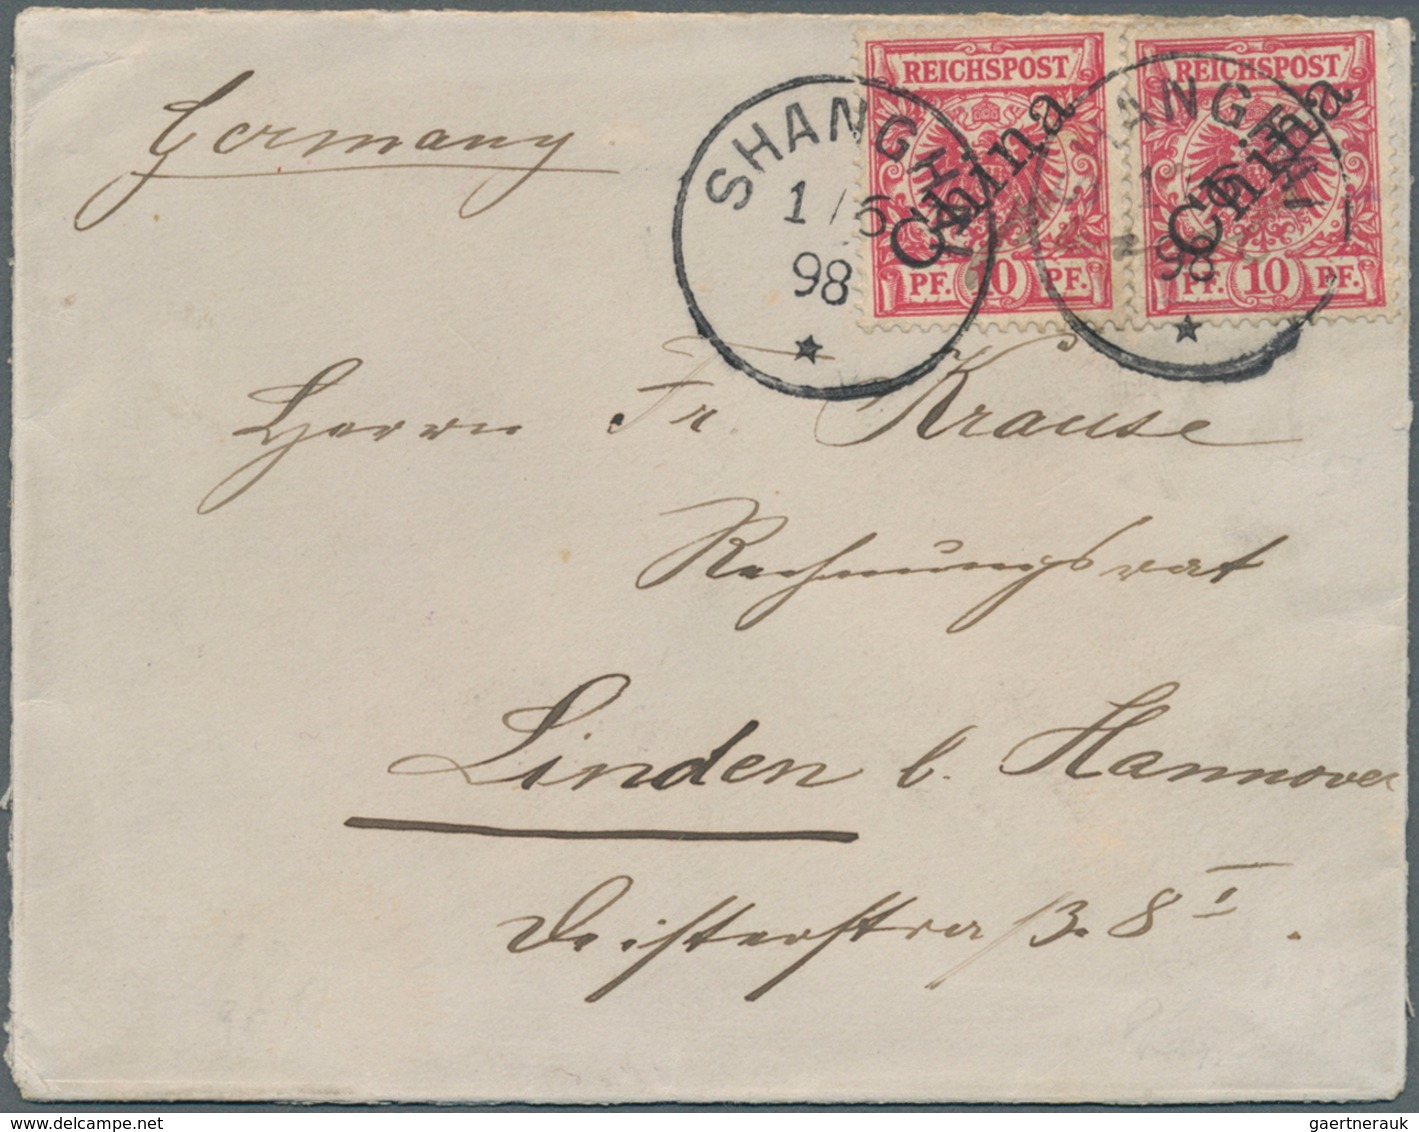 Germany
REICHSPOST
China
PF. 10 PF.
REICHSPOST
China
PF. 10 PF.
SHANGHAI
1/6
98
SHANGHAI
98
Herrn Fr. Krause
Rechnungsrat
Linden b. Hannover
Deisterstra
8 I
gaertnerauk